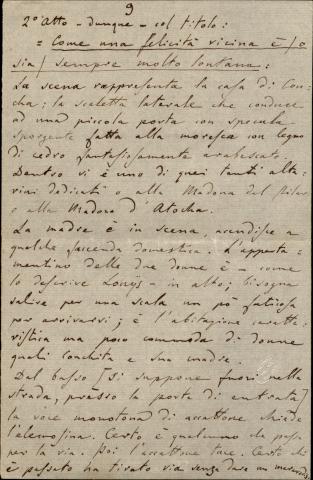 9
2º Atto - dunque - col titolo:
= Come una felicità vicina è (o
sia) sempre molto lontana =
La scena rappresenta la casa di Con-
cha; la scaletta laterale che conduce
ad una piccola porta con specula
sporgente fatta alla moresca con legno
di cedro fantasiosamente arabescato.
Dentro vi è uno di quei tanti alta-
rini dedicati o alla Madona del Pilar
o alla Madona d'Atocha.
La madre è in scena, accudisce a
qualche faccenda domestica. L'apparta-
mentino delle due donne è - come
lo descrive Louÿs - in alto; bisogna
salire per una scala un pò faticosa
per arrivarvi; è l'abitazione caratte-
ristica ma poco commoda di donne
quali Conchita e sua madre.
Dal basso [si suppone fuori nella
strada, presso la porta di entrata]
la voce monotona di accattone chiede
l'elemosina. Certo è qualcuno che passa
per la via. Poi l'accattone tace. Certo chi
è passato ha tirato via senza dare un